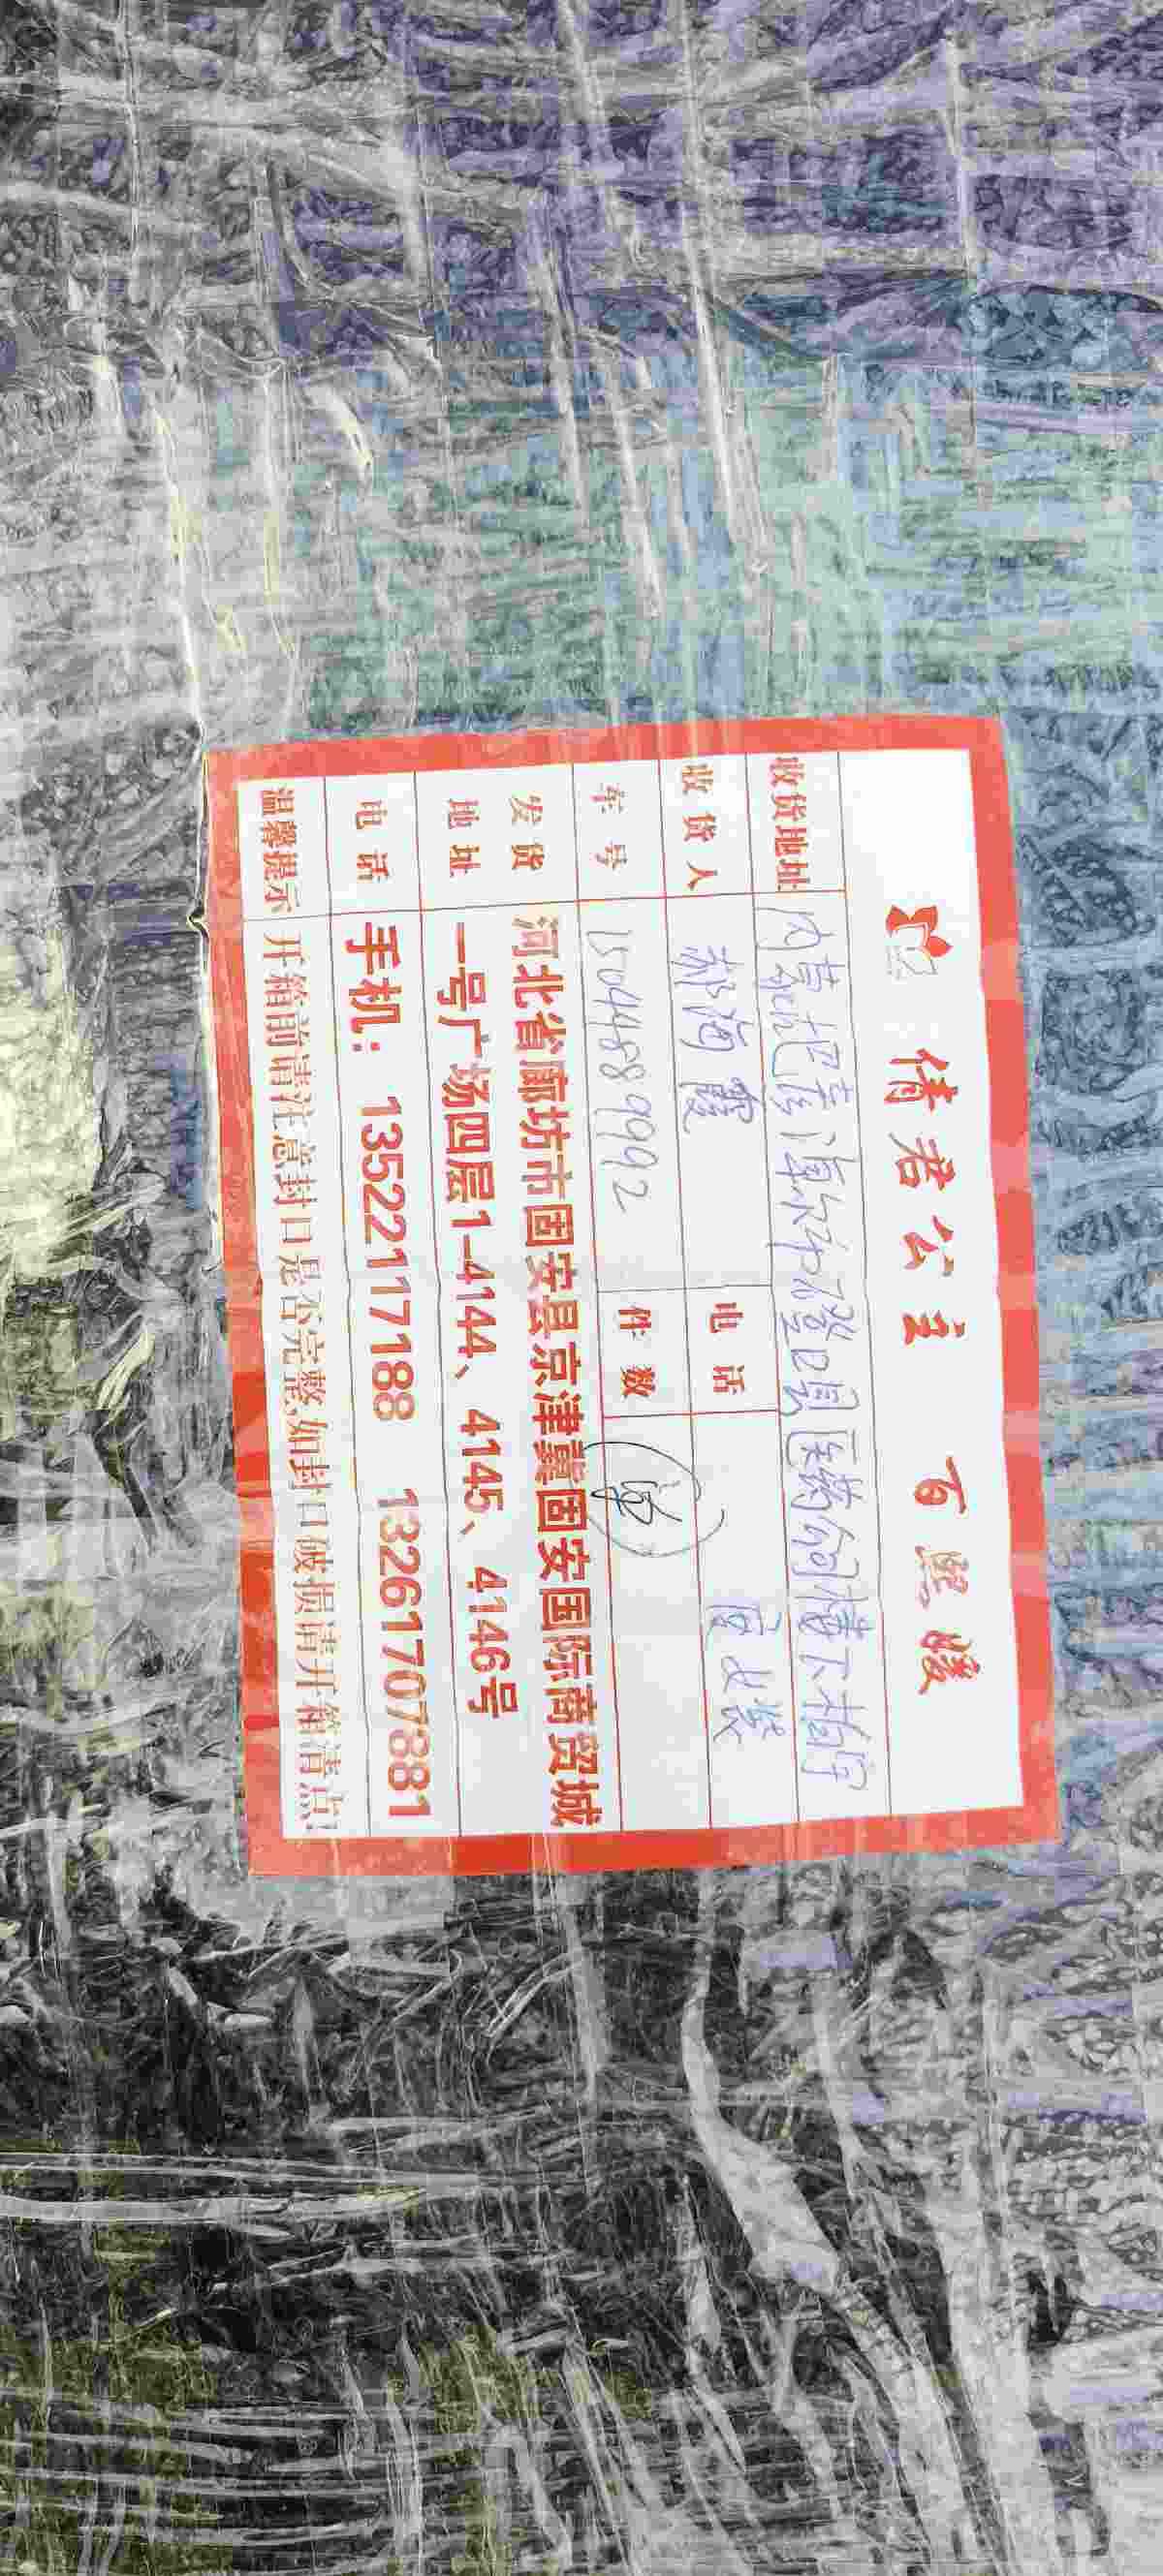 倩君公主 百熙暖
收货地址 内蒙巴彦淖尔市磴口县医药公司楼下
收货人 郝海霞 电话
车号 15044889992 件数
发货地址 河北省廊坊市固安县京津冀固安国际商贸城
一号广场四层1-4144、4145、4146号
电话 手机：13522117188 13261707881
温馨提示 开箱前请注意封口是否完整如封口破损请开箱清点!